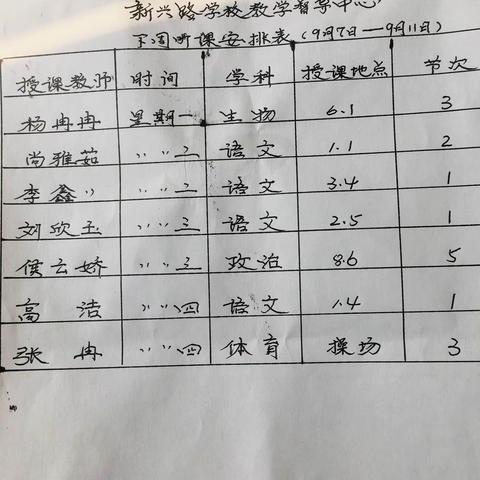 新兴路学校教学督导中心
下周听课安排表（9月7日—9月11日）
授课教师 时间 学科 授课地点 节次
杨冉冉 星期一 生物 6.1 3
尚雅茹 〃 〃 二 语文 1.1 2
李鑫〃 〃 〃 二 语文 3.4 1
刘欣玉 〃 〃 三 语文 2.5 1
侯云娇 〃 〃 三 政治 8.6 5
高 洁 〃 〃 四 语文 1.4 1
张 冉 〃 〃 四 体育 操场 3